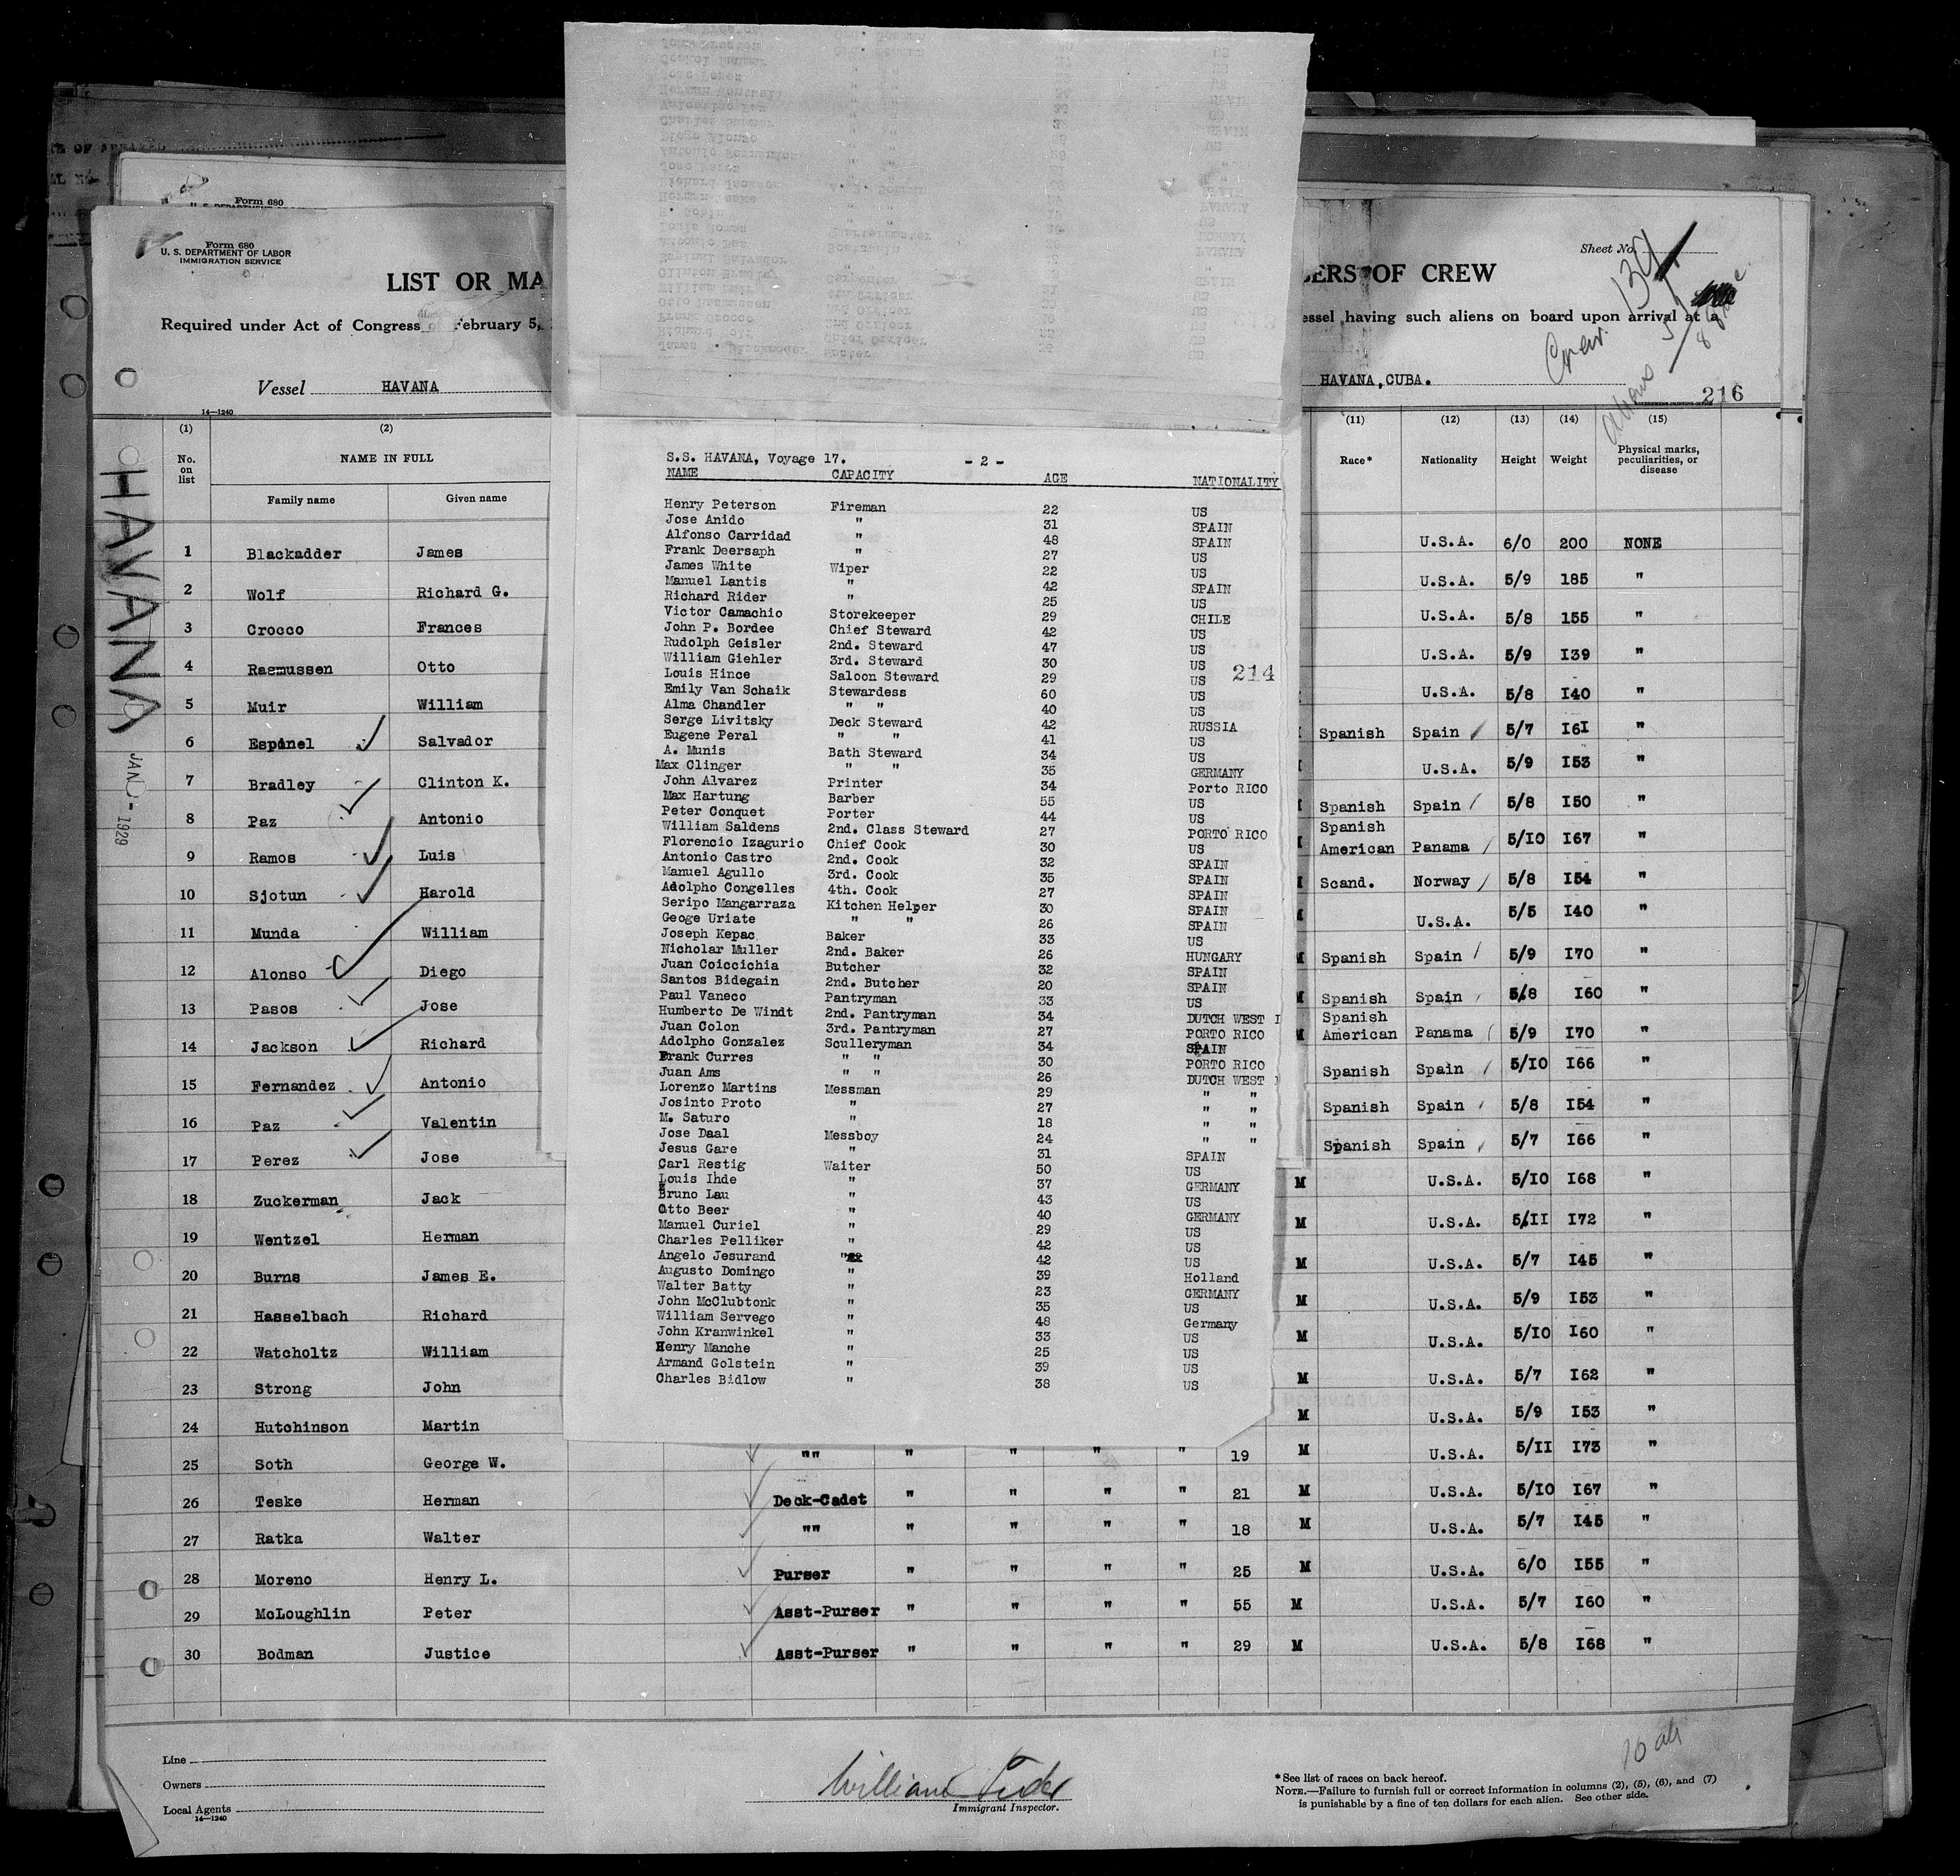 Form 680
Form 680
U. S. DEPARTMENT OF LABOR
IMMIGRATION SERVICE
LIST OR MA
ERS OF CREW
Sheet No.
Required under Act of Congress of February 5,
essel having such aliens on board upon arrival at a
Vessel HAVANA
HAVANA, CUBA.
Crew 134
216
14—1240
HAVANA
JAN - 1929
(1) (2) (11) (12) (13) (14) (15)
No. on list NAME IN FULL Race* Nationality Height Weight Physical marks, peculiarities, or disease
Family name Given name
1 Blackadder James U.S.A. 6/0 200 NONE
2 Wolf Richard G. U.S.A. 5/9 185 "
3 Crocco Frances U.S.A. 5/8 155 "
4 Rasmussen Otto U.S.A. 5/9 I39 "
5 Muir William U.S.A. 5/8 I40 "
6 Espinel Salvador Spanish Spain 5/7 I6I "
7 Bradley Clinton K. U.S.A. 5/9 I53 "
8 Paz Antonio Spanish Spain 5/8 I50 "
9 Ramos Luis Spanish American Panama 5/10 I67 "
10 Sjotun Harold Scand. Norway 5/8 I54 "
11 Munda William U.S.A. 5/5 I40 "
12 Alonso Diego Spanish Spain 5/9 I70 "
13 Pasos Jose Spanish Spain 5/8 I60 "
14 Jackson Richard Spanish American Panama 5/9 I70 "
15 Fernandez Antonio Spanish Spain 5/10 I66 "
16 Paz Valentin Spanish Spain 5/8 I54 "
17 Perez Jose Spanish Spain 5/7 I66 "
18 Zuckerman Jack M U.S.A. 5/10 I68 "
19 Wentzel Herman M U.S.A. 5/II I72 "
20 Burns James E. M U.S.A. 5/7 I45 "
21 Hasselbach Richard M U.S.A. 5/9 I53 "
22 Watcholtz William M U.S.A. 5/10 I60 "
23 Strong John M U.S.A. 5/7 I62 "
24 Hutchinson Martin M U.S.A. 5/9 I53 "
25 Soth George W. "" " " " " 19 M U.S.A. 5/II I73 "
26 Teske Herman Deck-Cadet " " " " 21 M U.S.A. 5/IO I67 "
27 Ratka Walter "" " " " " 18 M U.S.A. 5/7 I45 "
28 Moreno Henry L. Purser " " " " 25 M U.S.A. 6/0 I55 "
29 McLoughlin Peter Asst-Purser " " " " 55 M U.S.A. 5/7 I60 "
30 Bodman Justice Asst-Purser " " " " 29 M U.S.A. 5/8 I68 "
S.S. HAVANA, Voyage 17. - 2 -
NAME CAPACITY AGE NATIONALITY
Henry Peterson Fireman 22 US
Jose Anido " 31 SPAIN
Alfonso Carridad " 48 SPAIN
Frank Deersaph " 27 US
James White Wiper 22 US
Manuel Lantis " 42 SPAIN
Richard Rider " 25 US
Victor Camachio Storekeeper 29 CHILE
John P. Bordee Chief Steward 42 US
Rudolph Geisler 2nd. Steward 47 US
William Giehler 3rd. Steward 30 US
214
Louis Hince Saloon Steward 29 US
Emily Van Schaik Stewardess 60 US
Alma Chandler " " 40 US
Serge Livitsky Deck Steward 42 RUSSIA
Eugene Peral " " 41 US
A. Munis Bath Steward 34 US
Max Clinger " " 35 GERMANY
John Alvarez Printer 34 Porto RICO
Max Hartung Barber 55 US
Peter Conquet Porter 44 US
William Saldens 2nd. Class Steward 27 PORTO RICO
Florencio Izagurio Chief Cook 30 US
Antonio Castro 2nd. Cook 32 SPAIN
Manuel Agullo 3rd. Cook 35 SPAIN
Adolpho Congelles 4th. Cook 27 SPAIN
Seripo Mangarraza Kitchen Helper 30 SPAIN
Geoge Uriate " " 26 SPAIN
Joseph Kepac Baker 33 US
Nicholar Muller 2nd. Baker 26 HUNGARY
Juan Coiccichia Butcher 32 SPAIN
Santos Bidegain 2nd. Butcher 20 SPAIN
Paul Vaneco Pantryman 33 US
Humberto De Windt 2nd. Pantryman 34 DUTCH WEST I
Juan Colon 3rd. Pantryman 27 PORTO RICO
Adolpho Gonzalez Sculleryman 34 SPAIN
Frank Curres " " 30 PORTO RICO
Juan Ams " " 26 DUTCH WEST
Lorenzo Martins Messman 29 " "
Josinto Proto " 27 " "
M. Saturo " 18 " "
Jose Daal Messboy 24 " "
Jesus Gare " 31 SPAIN
Carl Restig Waiter 50 US
Louis Ihde " 37 GERMANY
Bruno Lau " 43 US
Otto Beer " 40 GERMANY
Manuel Curiel " 29 US
Charles Pelliker " 42 US
Angelo Jesurand " 42 US
Augusto Domingo " 39 Holland
Walter Batty " 23 GERMANY
John McClubtonk " 35 US
William Servego " 48 Germany
John Kranwinkel " 33 US
Henry Manche " 25 US
Armand Golstein " 39 US
Charles Bidlow " 38 US
Line
Owners
Local Agents
14—1240
William
Immigrant Inspector.
*See list of races on back hereof.
NOTE.—Failure to furnish full or correct information in columns (2), (5), (6), and (7)
is punishable by a fine of ten dollars for each alien. See other side.